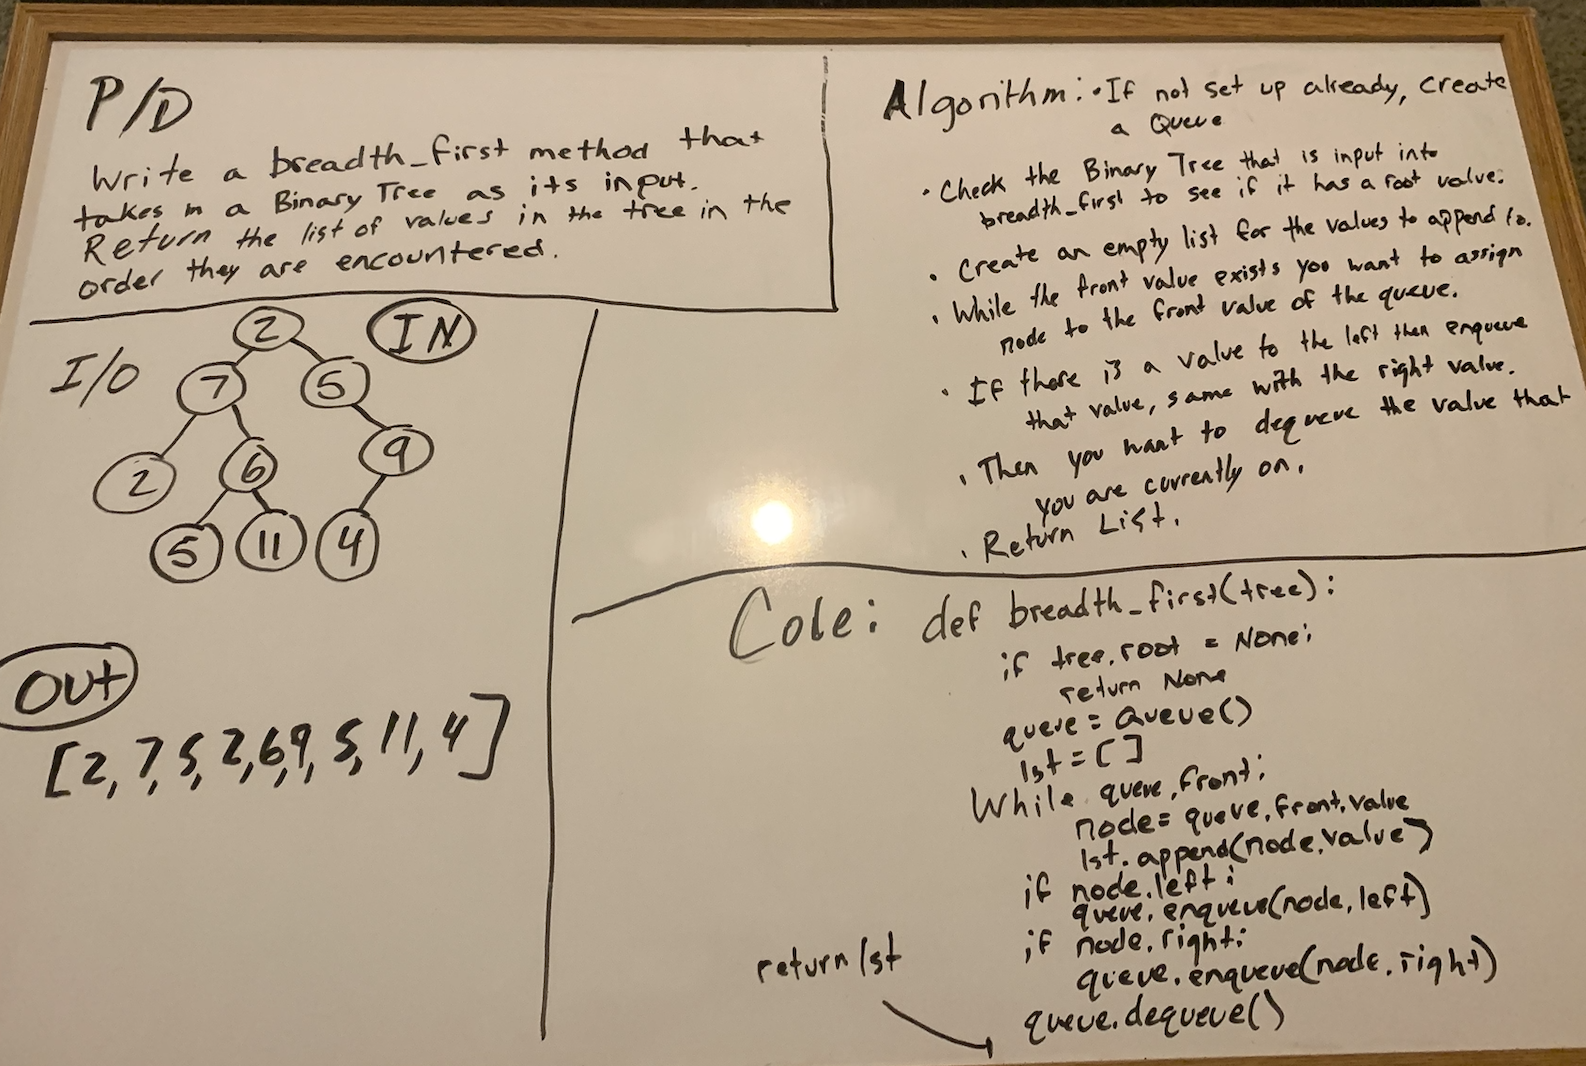 P/D
Write a breadth_first method that
takes in a Binary Tree as its input.
Return the list of values in the tree in the
order they are encountered.
I/O
IN
2
7 5
2 6 9
5 11 4
OUT
[2, 7, 5, 2, 6, 9, 5, 11, 4]
Algorithm: • If not set up already, create
a Queue
• Check the Binary Tree that is input into
breadth_first to see if it has a root value.
• Create an empty list for the values to append to.
• While the front value exists you want to assign
node to the front value of the queue.
• If there is a value to the left then enqueue
that value, same with the right value.
• Then you want to dequeue the value that
you are currently on.
• Return List.
Code: def breadth_first(tree):
if tree.root = None:
return None
queue = Queue()
lst = []
While queue.front:
node = queue.front.value
lst.append(node.value)
if node.left:
queue.enqueue(node.left)
if node.right:
queue.enqueue(node.right)
queue.dequeue()
return lst